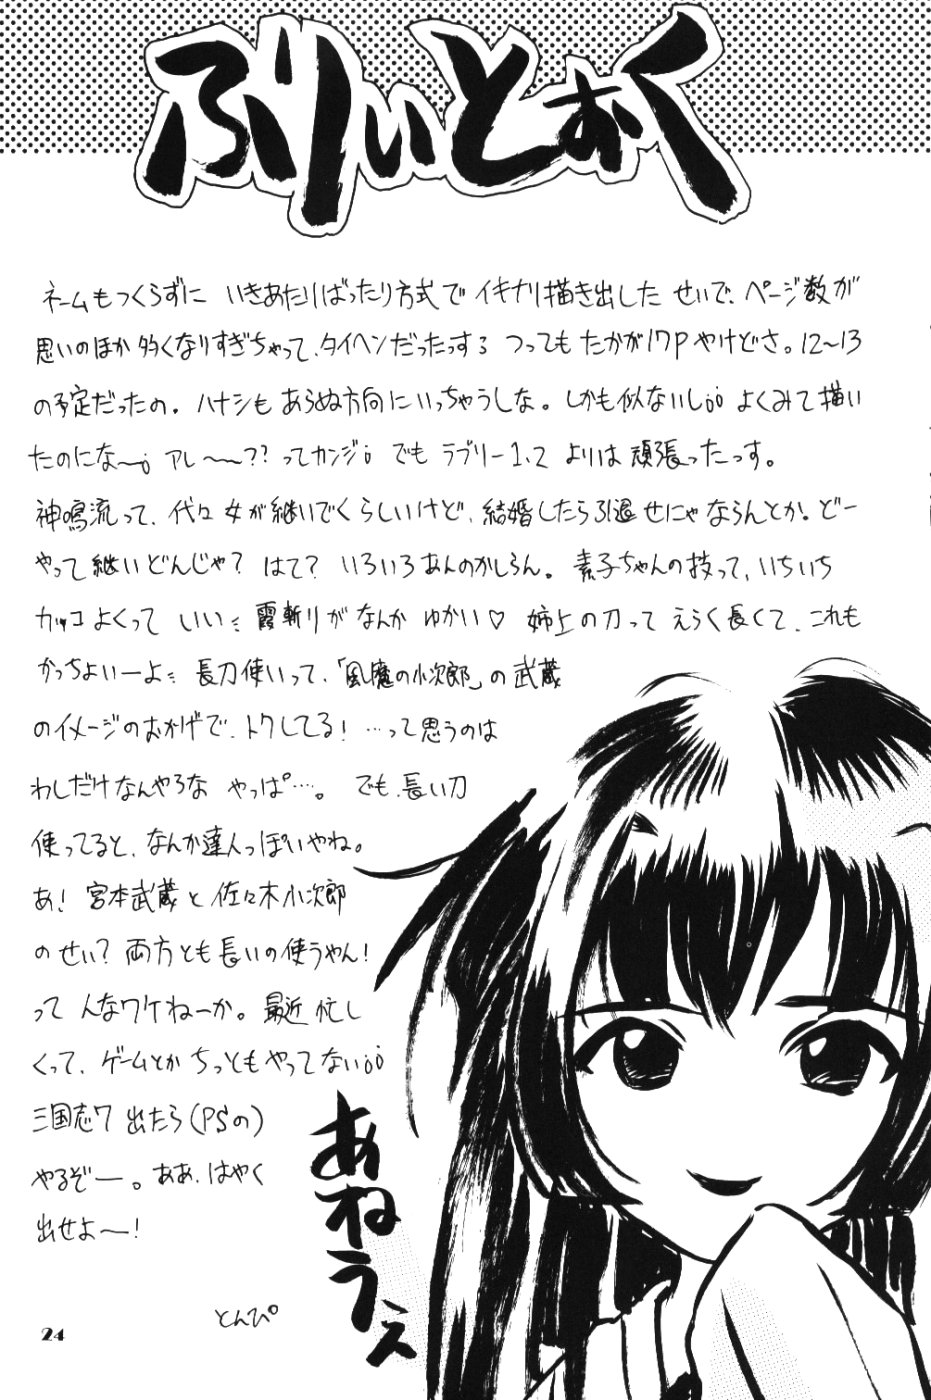 ふりぃとぉく
ネームもつくらずに いきあたりばったり方式で イキナリ描き出した せいで、ページ数が
思いのほか 多くなりすぎちゃって、タイヘンだったっする つっても たかが17Pやけどさ。12〜13
の予定だったの。ハナシも あらぬ方向に いっちゃうしな。しかも似ないし。。よくみて描い
たのにな〜。 アレ〜〜?? ってカンジ。 でも ラブリー1、2 よりは 頑張ったっす。
神鳴流って、代々 女が継いでくらしいけど、結婚したら引退せにゃならんとか。どー
やって 継いどんじゃ? はて? いろいろあんのかしらん。 素子ちゃんの技って、いちいち
カッコ よくって いい 霞斬りが なんか ゆかい♡ 姉上の刀って えらく長くて、これも
かっちょいーよ 長刀使いって、「風魔の小次郎」の武蔵
のイメージのおかげで、トクしてる! …って思うのは
わしだけなんやろな やっぱ…。 でも、長い刀
使ってると、なんか達人っぽいやね。
あ! 宮本武蔵と 佐々木小次郎
のせい? 両方とも長いの使うやん!
って んなワケねーか。 最近 忙し
くって、ゲームとか ちっともやってない。。
三国志7 出たら(PSの)
やるぞー。ああ、はやく
出せよ〜!
とんぴ
あねうえ
24